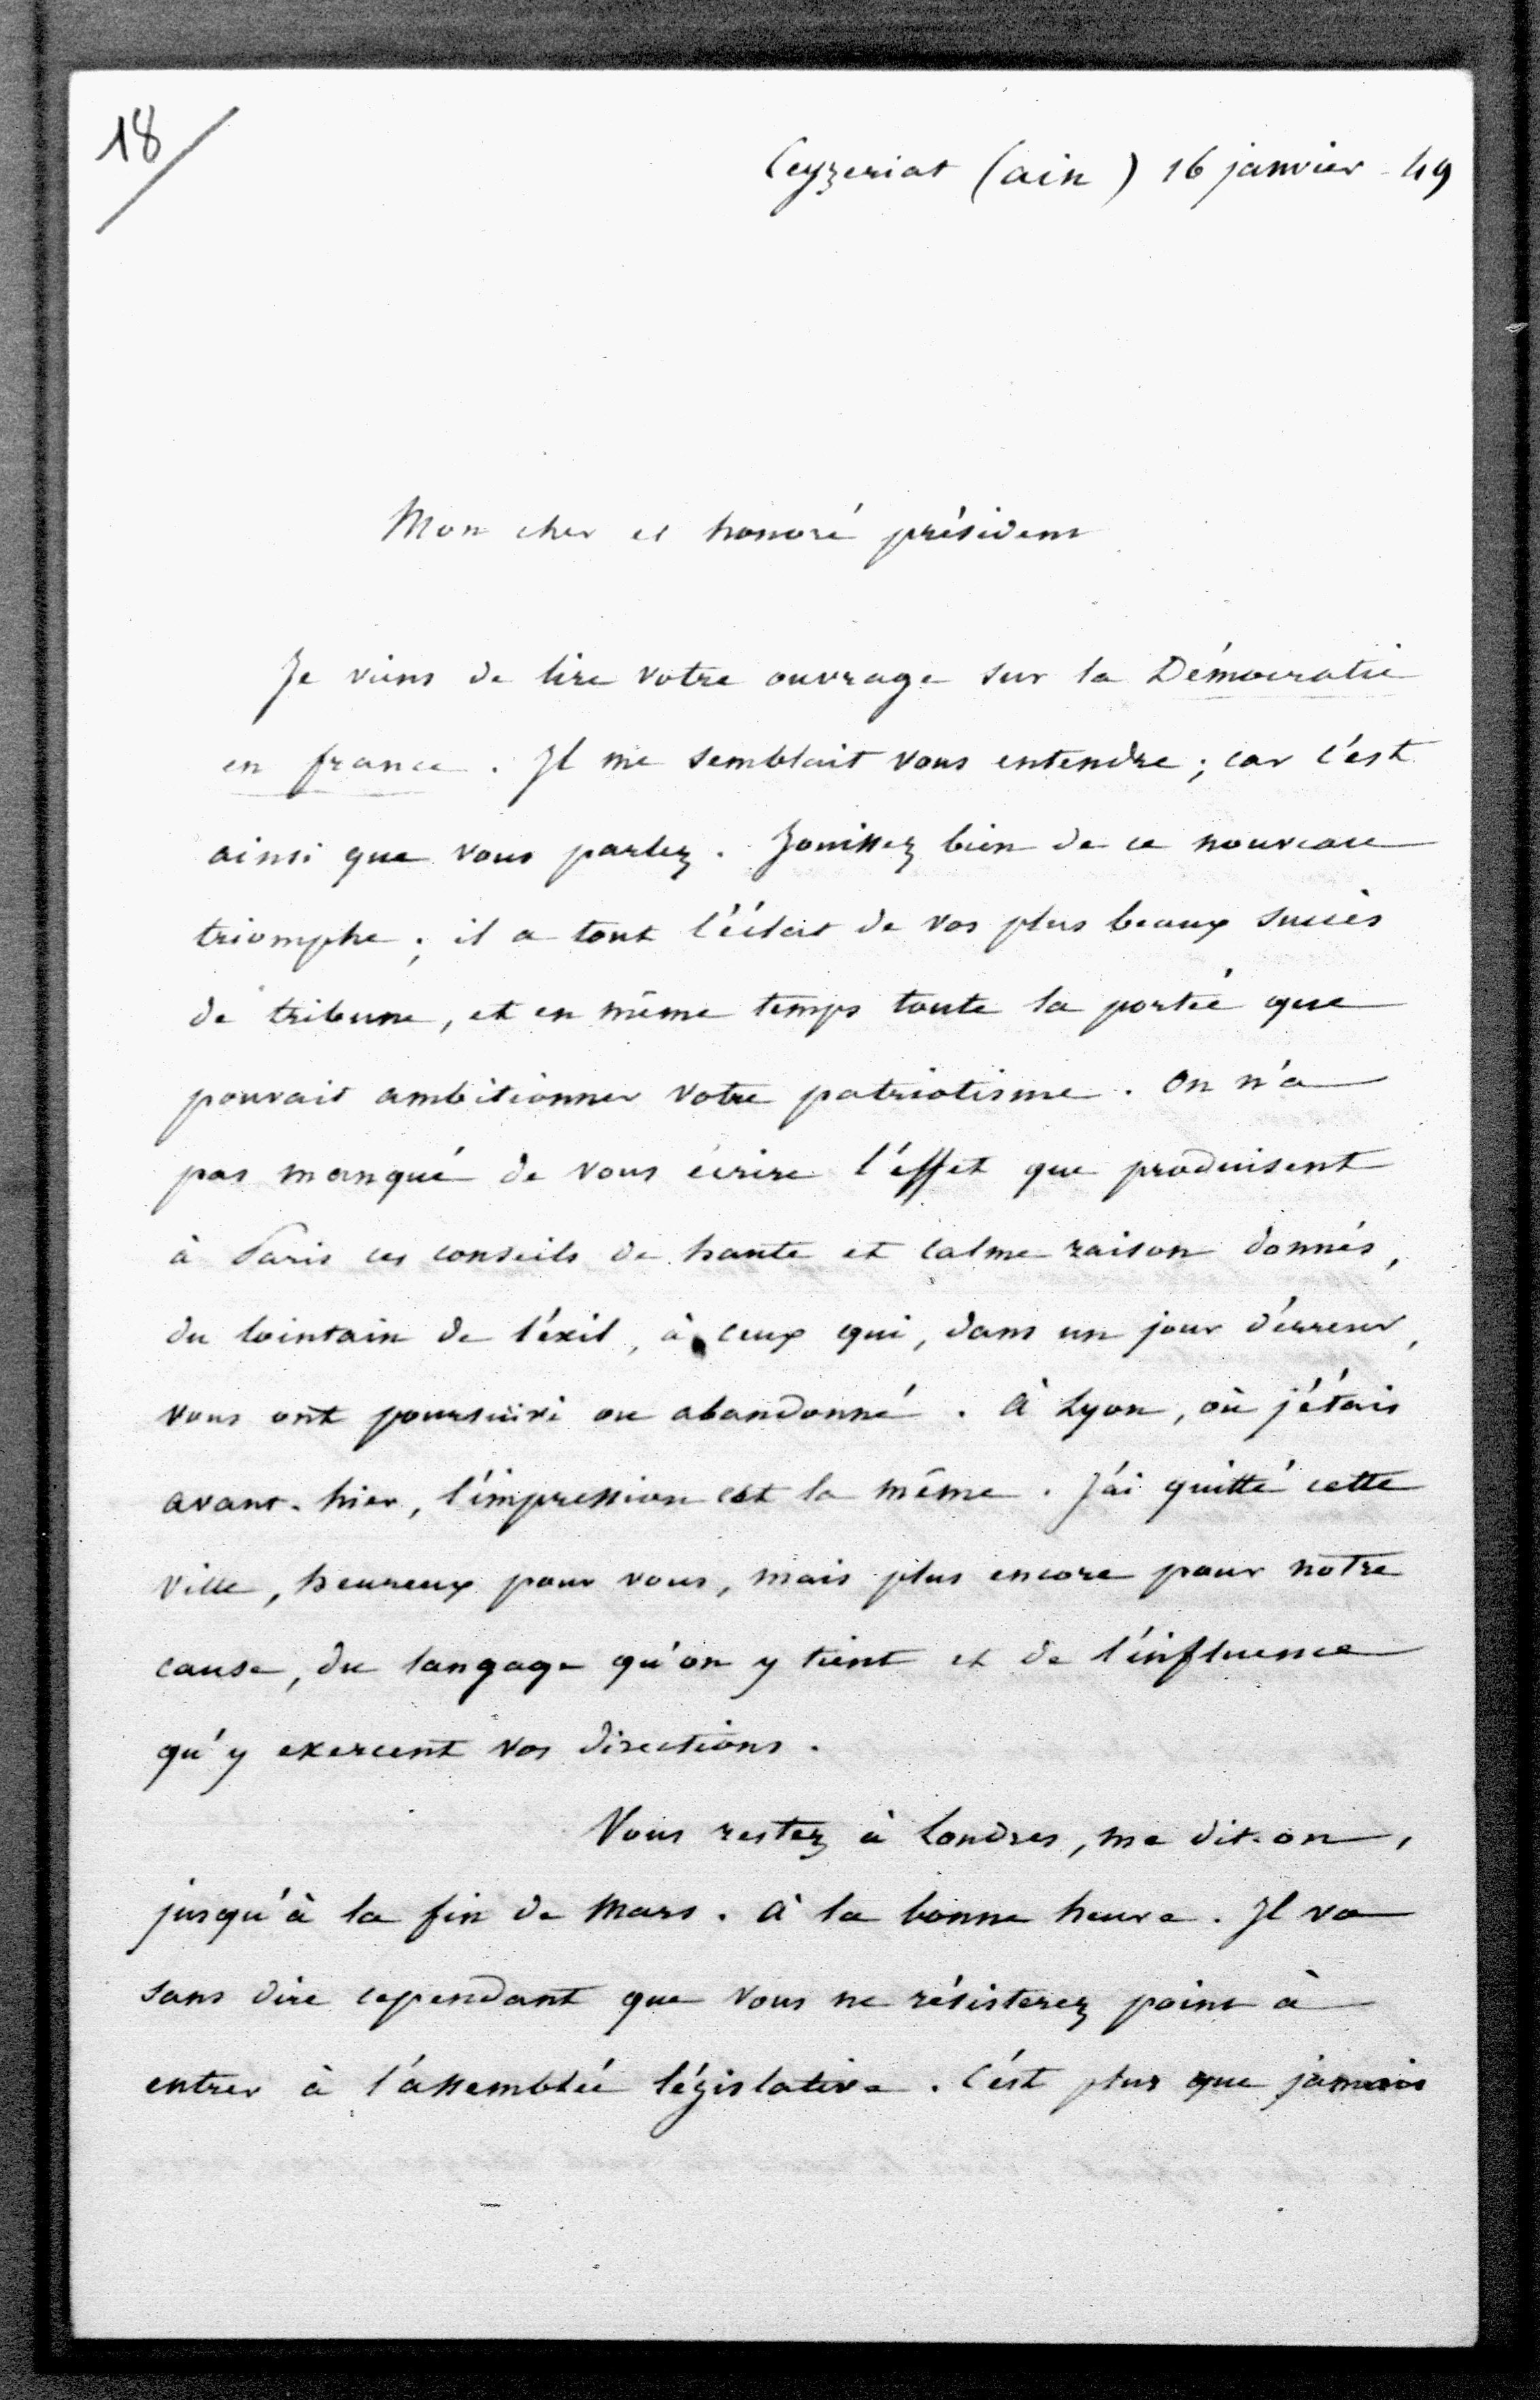 18
Ceyzeriat (ain) 16 janvier - 49
Mon cher et honoré président
Je viens de lire votre ouvrage sur la Démocratie
en france. Il me semblait vous entendre ; car c'est
ainsi que vous parlez. Jouissez bien de ce nouveau
triomphe ; il a tout l'éclat de vos plus beaux succès
de tribune, et en même temps toute la portée que
pouvait ambitionner votre patriotisme. On n'a
pas manqué de vous écrire l'effet que produisent
à Paris ces conseils de haute et calme raison donnés,
du lointain de l'exil, à ceux qui, dans un jour d'erreur,
vous ont poursuivi ou abandonné. à Lyon, où j'étais
avant-hier, l'impression est la même. J'ai quitté cette
ville, heureux pour vous, mais plus encore pour notre
cause, du langage qu'on y tient et de l'influence
qu'y exercent vos directions.
Vous restez à Londres, me dit-on,
jusqu'à la fin de Mars. à la bonne heure. Il va
sans dire cependant que vous ne résisterez point à
entrer à l'assemblée législative. C'est plus que jamais